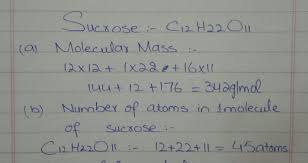 Sucrose :- C12H22O11
(a) Molecular Mass :-
12x12 + 1x22 + 16x11
144 + 12 + 176 = 342g|mol
(b) Number of atoms in 1molecule
of sucrose :-
C12H22O11 :- 12+22+11 = 45atoms